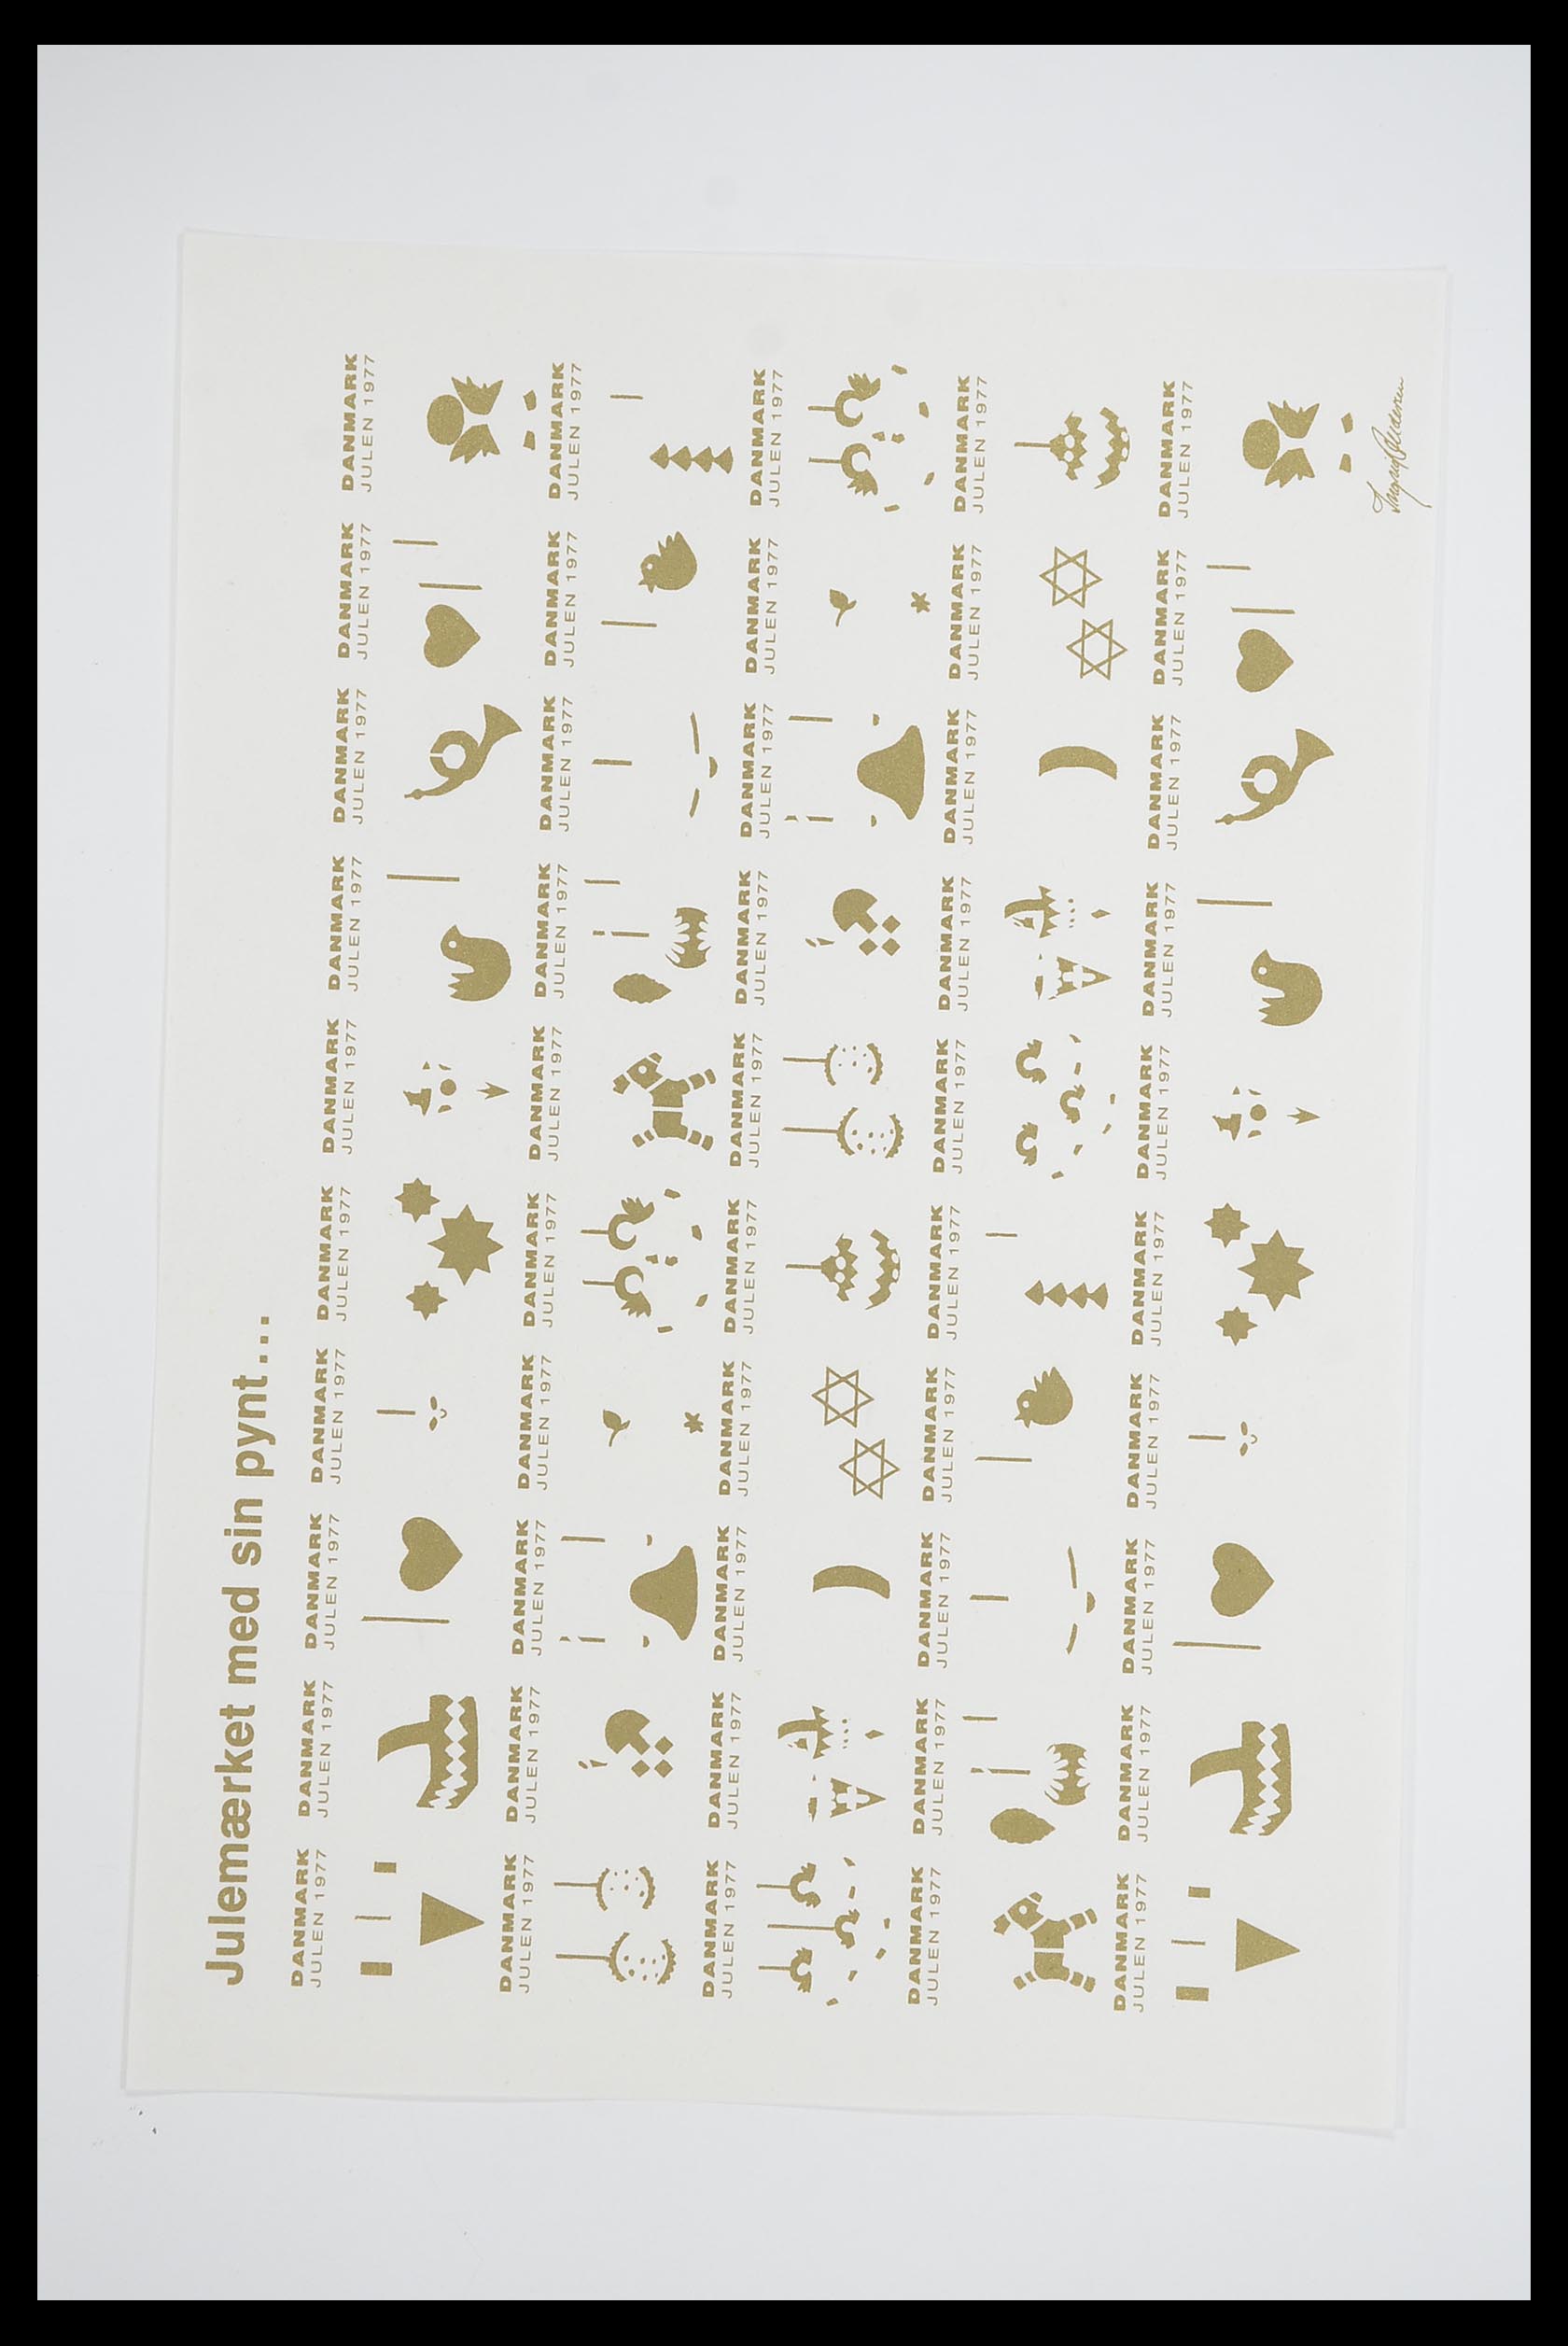 Julemærket med sin pynt...
DANMARK DANMARK DANMARK DANMARK DANMARK DANMARK DANMARK DANMARK DANMARK DANMARK
JULEN 1977 JULEN 1977 JULEN 1977 JULEN 1977 JULEN 1977 JULEN 1977 JULEN 1977 JULEN 1977 JULEN 1977 JULEN 1977
DANMARK DANMARK DANMARK DANMARK DANMARK DANMARK DANMARK DANMARK DANMARK DANMARK
JULEN 1977 JULEN 1977 JULEN 1977 JULEN 1977 JULEN 1977 JULEN 1977 JULEN 1977 JULEN 1977 JULEN 1977 JULEN 1977
DANMARK DANMARK DANMARK DANMARK DANMARK DANMARK DANMARK DANMARK DANMARK DANMARK
JULEN 1977 JULEN 1977 JULEN 1977 JULEN 1977 JULEN 1977 JULEN 1977 JULEN 1977 JULEN 1977 JULEN 1977 JULEN 1977
DANMARK DANMARK DANMARK DANMARK DANMARK DANMARK DANMARK DANMARK DANMARK DANMARK
JULEN 1977 JULEN 1977 JULEN 1977 JULEN 1977 JULEN 1977 JULEN 1977 JULEN 1977 JULEN 1977 JULEN 1977 JULEN 1977
DANMARK DANMARK DANMARK DANMARK DANMARK DANMARK DANMARK DANMARK DANMARK DANMARK
JULEN 1977 JULEN 1977 JULEN 1977 JULEN 1977 JULEN 1977 JULEN 1977 JULEN 1977 JULEN 1977 JULEN 1977 JULEN 1977